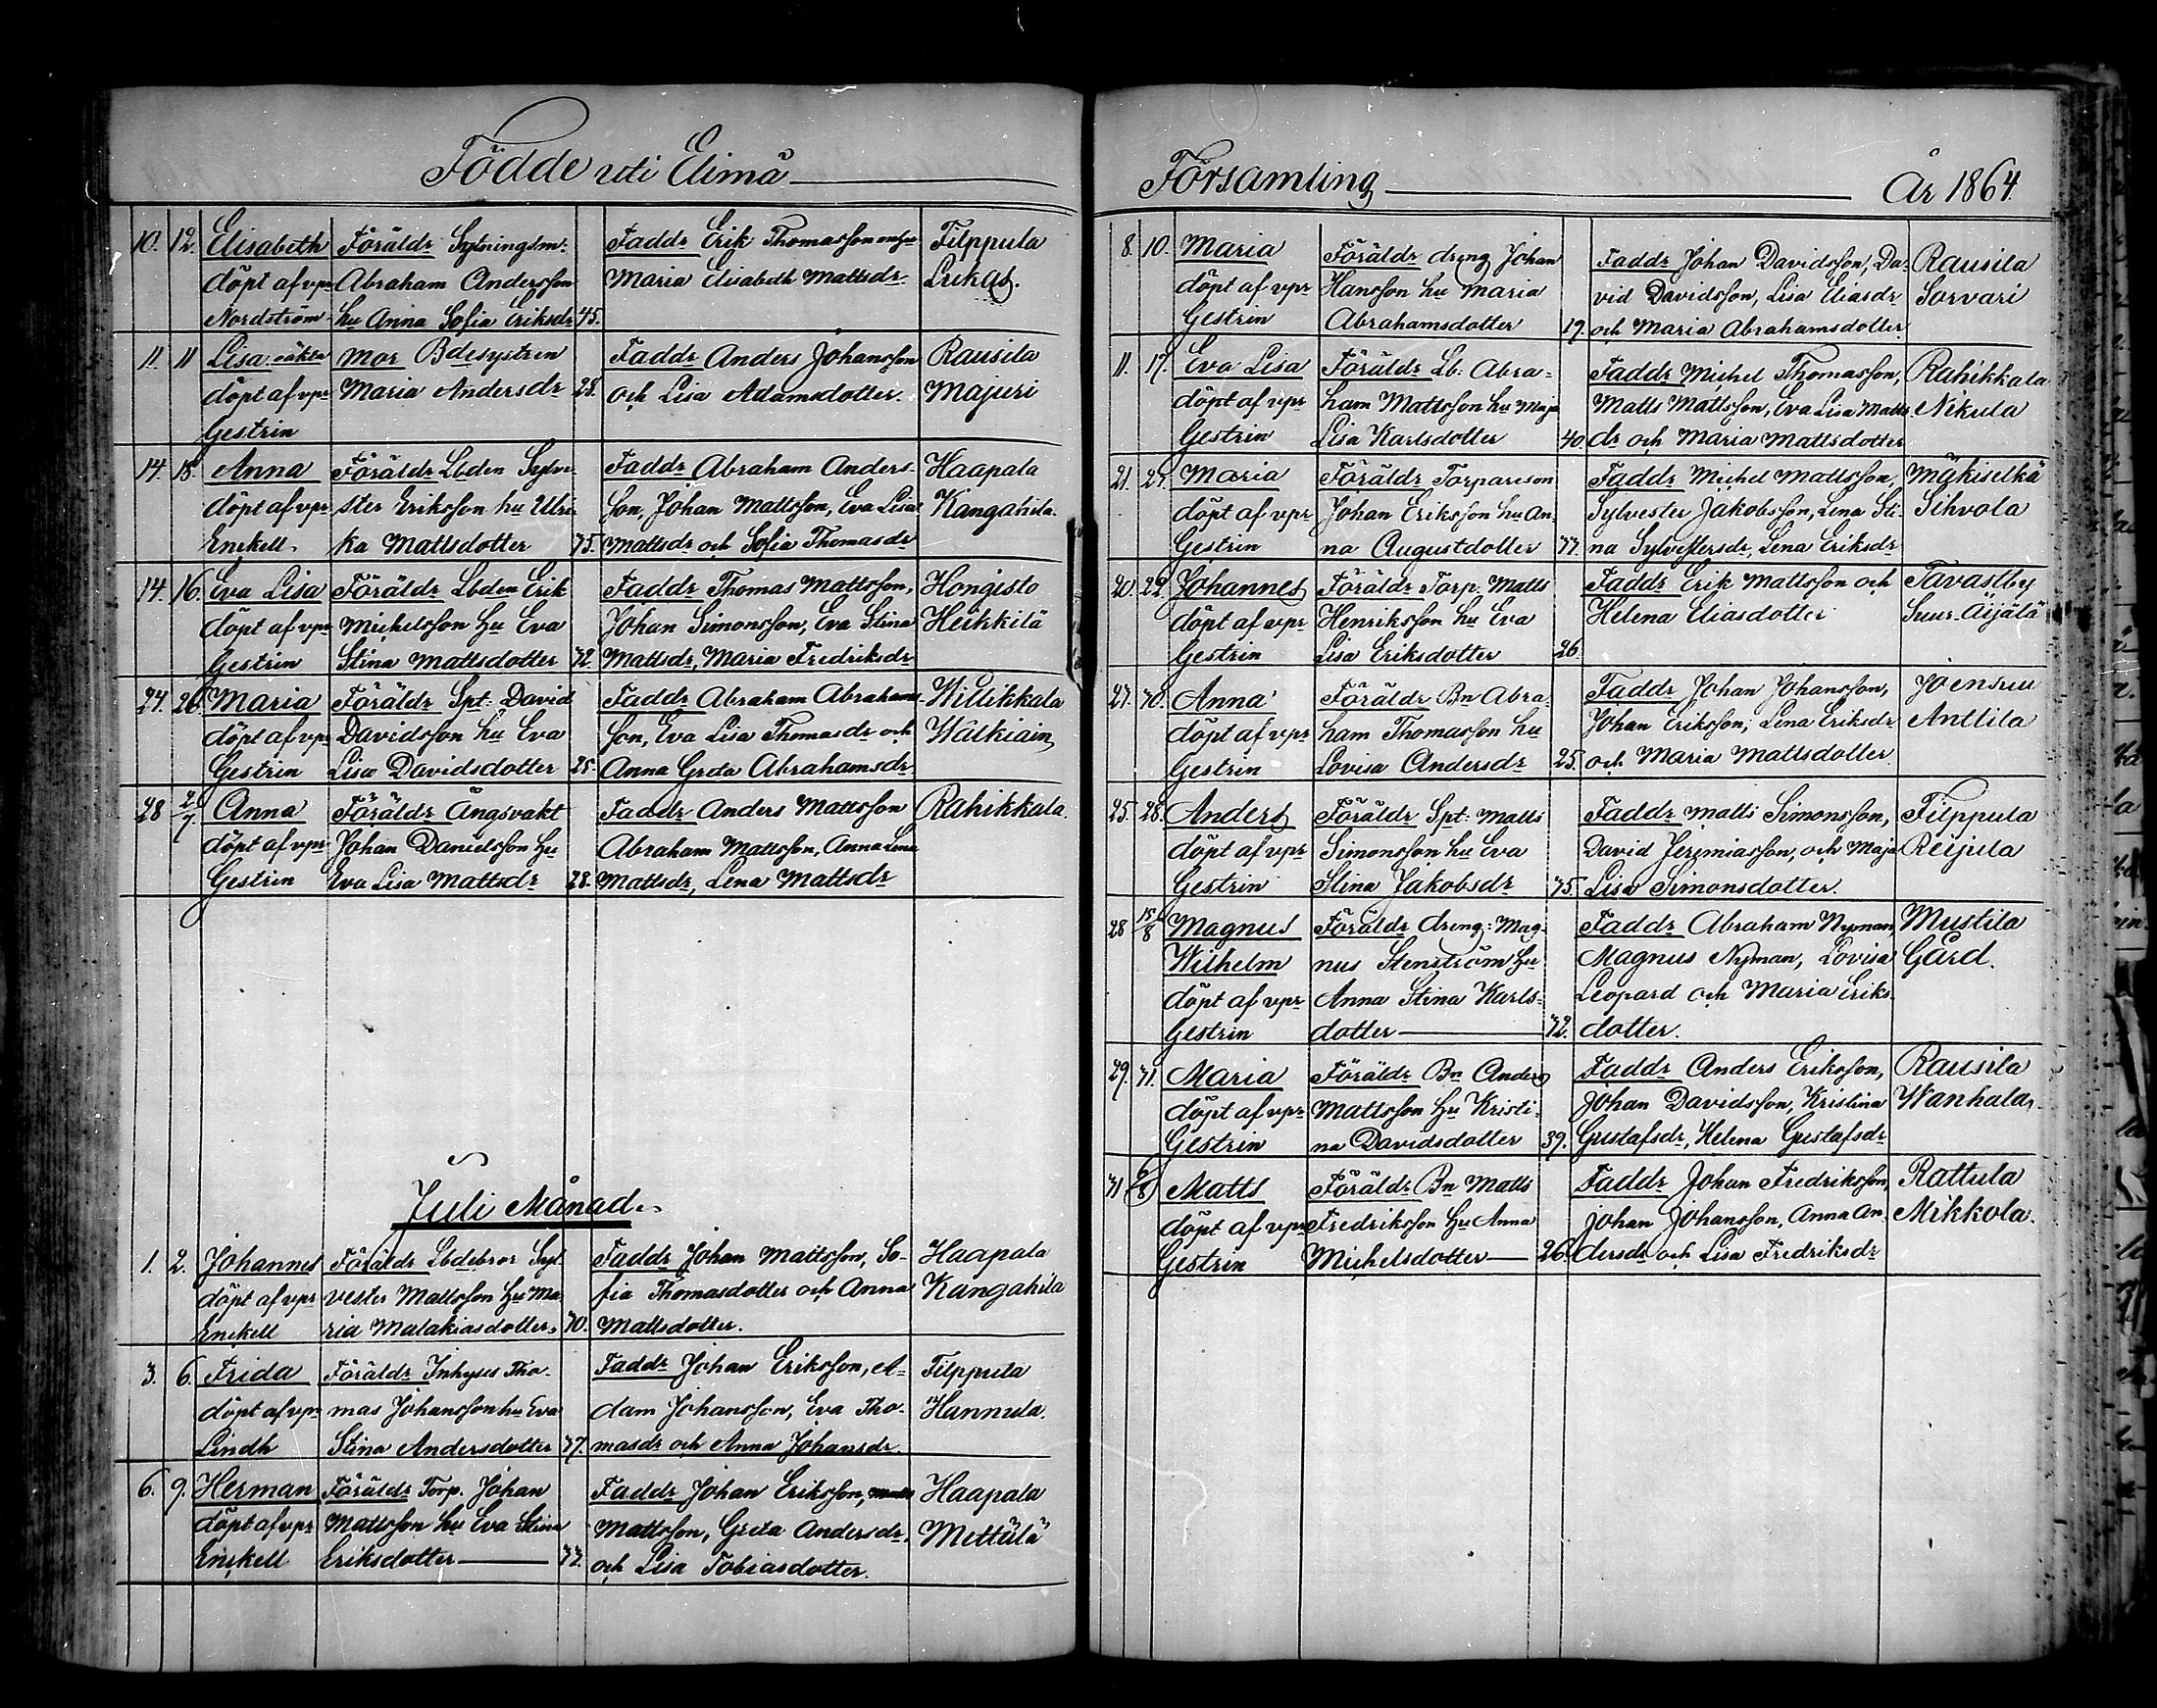 Födde uti Elimä
10. 12. Elisabeth Föräldr Sytningsm: Faddr Erik Thomasson Filppula
döpt af vpr Abraham Andersson Maria Elisabeth Mattsdr. Lukas.
Nordström. hu Anna Sofia Eriksdr 45.
11. 11 Lisa oäkta Mor Bdesystren Faddr Anders Johansson Rausila
döpt af vpr Maria Andersdr 28. och Lisa Adamsdotter. Majuri
Gestrin
14. 18. Anna Föräldr Lbden Sylve- Faddr Abraham Anders- Haapala
döpt af vpr ster Eriksson hu Ulri- son, Johan Mattsson, Eva Lisa Kangahila.
Enckell. ka Mattsdotter 35. Mattsdr och Sofia Thomasdr
14. 16. Eva Lisa Föräldr Lbden Erik Faddr Thomas Mattsson, Hongisto
döpt af vpr Michelsson hu Eva Johan Simonsson, Eva Stina Heikkilä
Gestrin Stina Mattsdotter 32. Mattsdr, Maria Fredriksdr
24. 26. Maria Föräldr Spt: David Faddr Abraham Abrahams- Willikkala
döpt af vpr Davidsson hu Eva son, Eva Lisa Thomasdr och Walkiain
Gestrin Lisa Davidsdotter 25. Anna Greta Abrahamsdr
28 2/7 Anna Föräldr Ängsvakt Faddr Anders Mattsson Rahikkala.
döpt af vpr Johan Danielsson hu Abraham Mattsson, Anna Lena
Gestrin Eva Lisa Mattsdr 28. Mattsdr, Lena Mattsdr
Juli Månad.
1. 2. Johannes Föräldr Lbdebror Syl- Faddr Johan Mattsson, So- Haapala
döpt af vpr vester Mattsson hu Ma- fia Thomasdotter och Anna Kangahila
Enckell ria Malakiasdotter. 30. Mattsdotter.
3. 6. Frida Föräldr Inhyses Tho- Faddr Johan Eriksson, A- Filppula
döpt af vpr mas Johansson hu Eva dam Johansson, Eva Tho- Hannula.
Lindh Stina Andersdotter 37. masdr och Anna Johansdr.
6. 9. Herman Föräldr Torp. Johan Faddr Johan Eriksson, Matts Haapala
döpt af vpr Mattsson hu Eva Stina Mattsson, Greta Andersdr. Mettälä
Enckell Eriksdotter 33. och Lisa Tobiasdotter.
Församling År 1864.
8. 10. Maria Föräldr dreng Johan Faddr Johan Davidsson, Da- Rausila
döpt af vpr Hansson hu Maria vid Davidsson, Lisa Eliasdr Sorvari
Gestrin Abrahamsdotter 19. och Maria Abrahamsdotter.
11. 17. Eva Lisa Föräldr Lb: Abra- Faddr Michel Thomasson, Rahikkala
döpt af vpr ham Mattsson hu Maja Matts Mattsson, Eva Lisa Matts Nikula
Gestrin Lisa Karlsdotter 40. dr och Maria Mattsdotter
21. 24. Maria Föräldr Torpareson Faddr Michel Mattsson, Mäkiselkä
döpt af vpr Johan Eriksson hu An- Sylvester Jakobsson, Lena Sti- Sihvola
Gestrin na Augustdotter 33. na Sylvestersdr, Lena Eriksdr
20. 22. Johannes Föräldr Torp. Matts Faddr Erik Mattsson och Tavastby
döpt af vpr Henriksson hu Eva Helena Eliasdotter Suur-Äijälä
Gestrin Lisa Eriksdotter 26.
27. 30. Anna Föräldr Bn Abra- Faddr Johan Johansson, Joensuu
döpt af vpr ham Thomasson hu Johan Eriksson, Lena Eriksdr Anttila
Gestrin Lovisa Andersdr 25. och Maria Mattsdotter
25. 28. Anders Föräldr Spt: Matts Faddr Matts Simonsson, Filppula
döpt af vpr Simonsson hu Eva David Jeremiasson, och Maja Reijula
Gestrin Stina Jakobsdr 35. Lisa Simonsdotter.
28 15/8 Magnus Föräldr dreng: Mag- Faddr Abraham Nyman Mustila
Wilhelm nus Stenström hu Magnus Nyman, Lovisa Gård.
döpt af vpr Anna Stina Karls- Leopard och Maria Eriks-
Gestrin dotter 32. dotter.
29. 31. Maria Föräldr Bn Anders Faddr Anders Eriksson, Rausila
döpt af vpr Mattsson hu Kristi- Johan Davidsson, Kristina Wanhala.
Gestrin na Davidsdotter 39. Gustafsdr, Helena Gustafsdr
31 6/8 Matts Föräldr Bn Matts Faddr Johan Fredriksson, Rattula
döpt af vpr Fredriksson hu Anna Johan Johansson, Anna An- Mikkola.
Gestrin Michelsdotter 26. dersdr och Lisa Fredriksdr